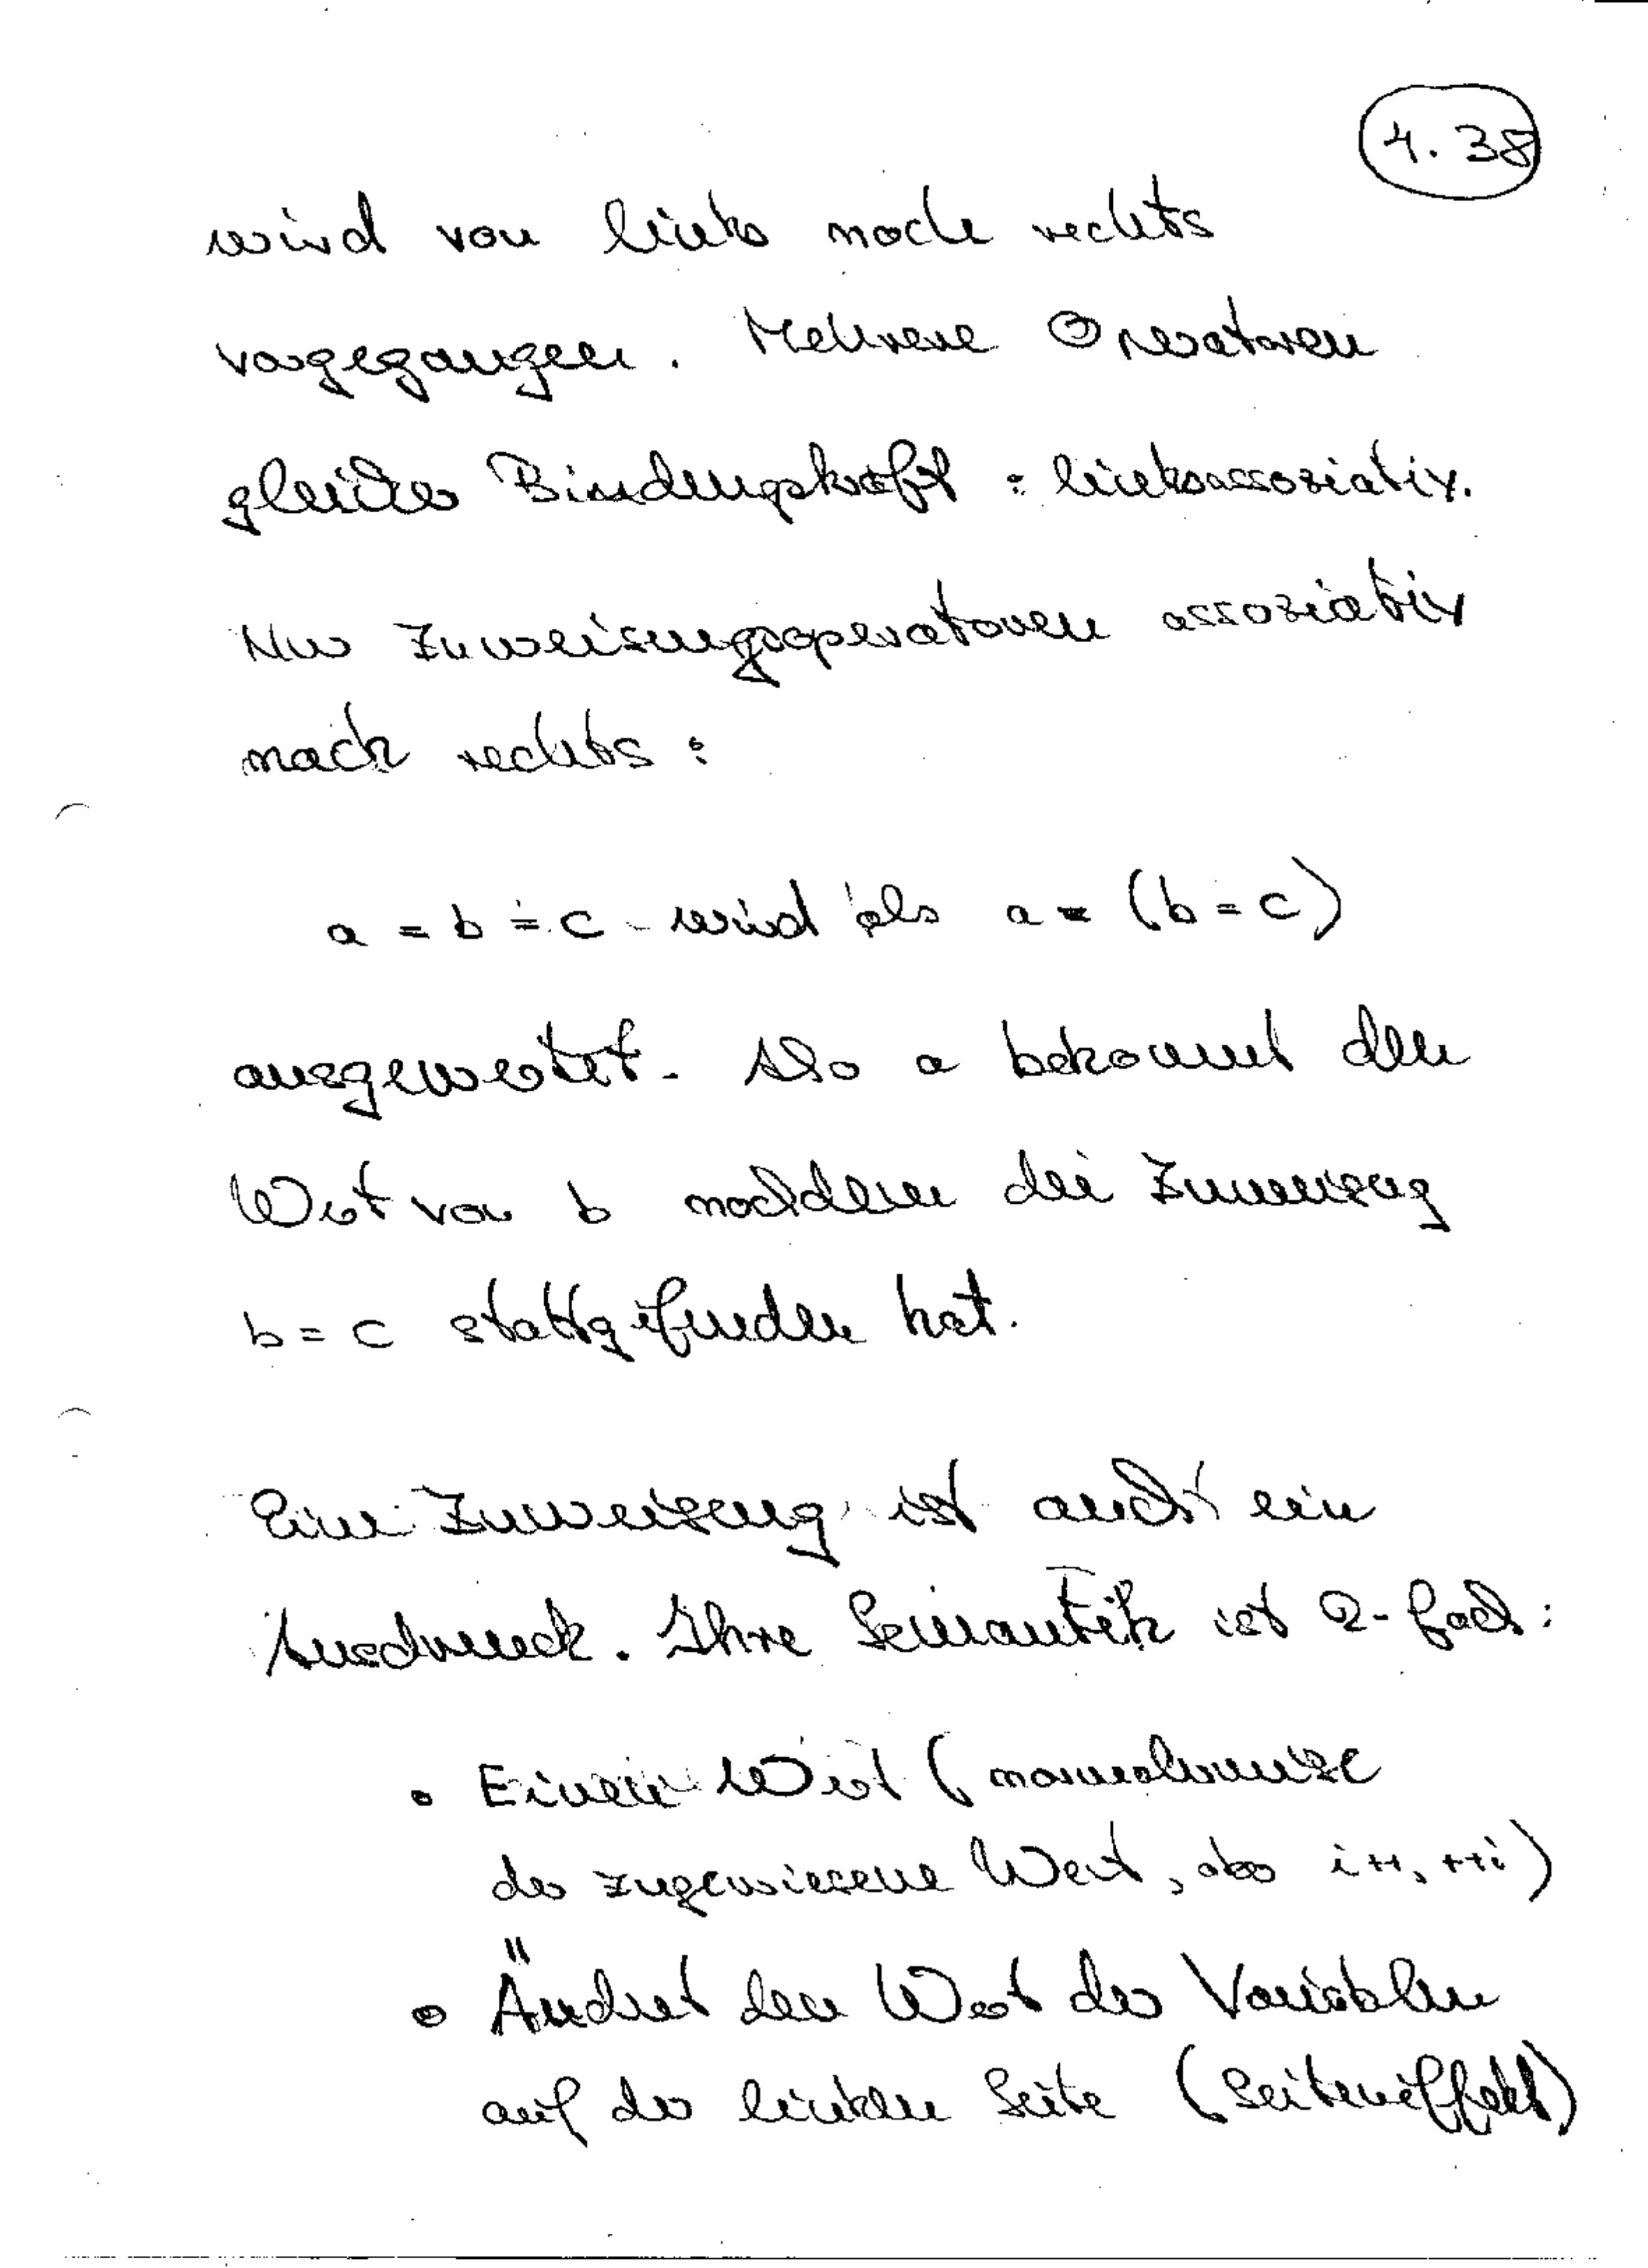 4.38
wird von links nach rechts
vorgegangen. Mehrere Operatoren
gleicher Bindungskraft : linksassoziativ.
Nur Zuweisungsoperatoren assoziativ
nach rechts :
a = b = c wird als a = (b = c)
ausgewertet. Also a bekommt den
Wert von b nachdem die Zuweisung
b = c stattgefunden hat.
Eine Zuweisung ist auch ein
Ausdruck. Ihre Semantik ist 2-fach :
• Einen Wert (normalerweise
der zugewiesene Wert, aber i++, ++i)
• Ändert den Wert der Variablen
auf der linken Seite (Seiteneffekt)